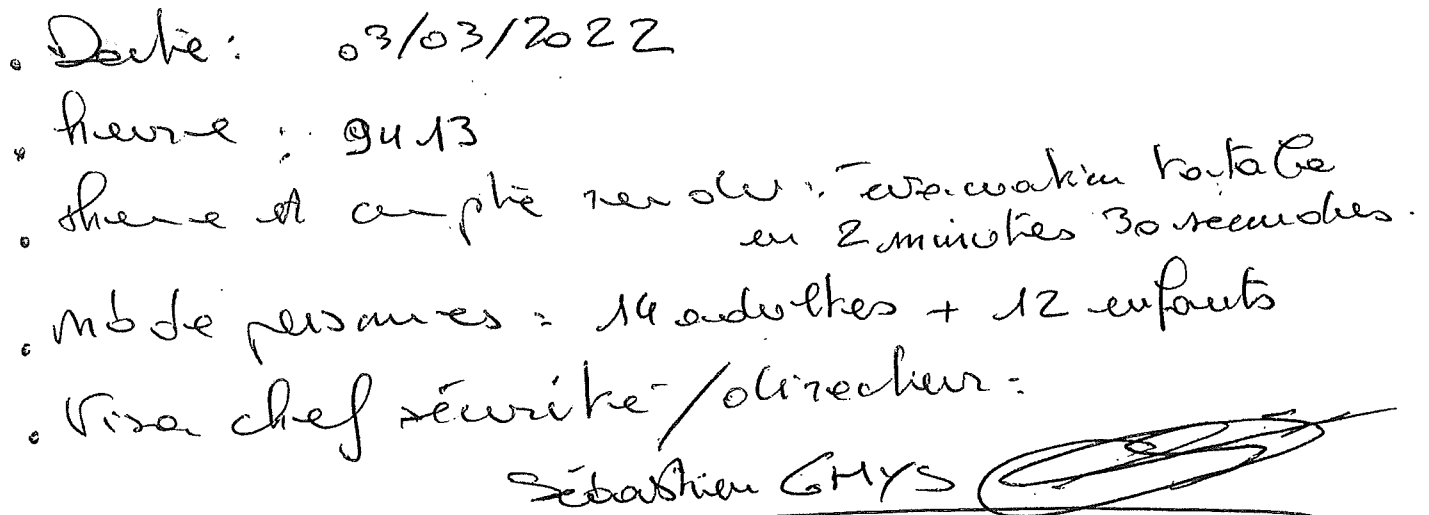 . Date : 03/03/2022
. heure : 9H13
. theme et compte rendu : évacuation totale
en 2 minutes 30 secondes.
. nb de personnes = 14 adultes + 12 enfants
. Visa chef sécurité / directeur =
Sébastien GHYS